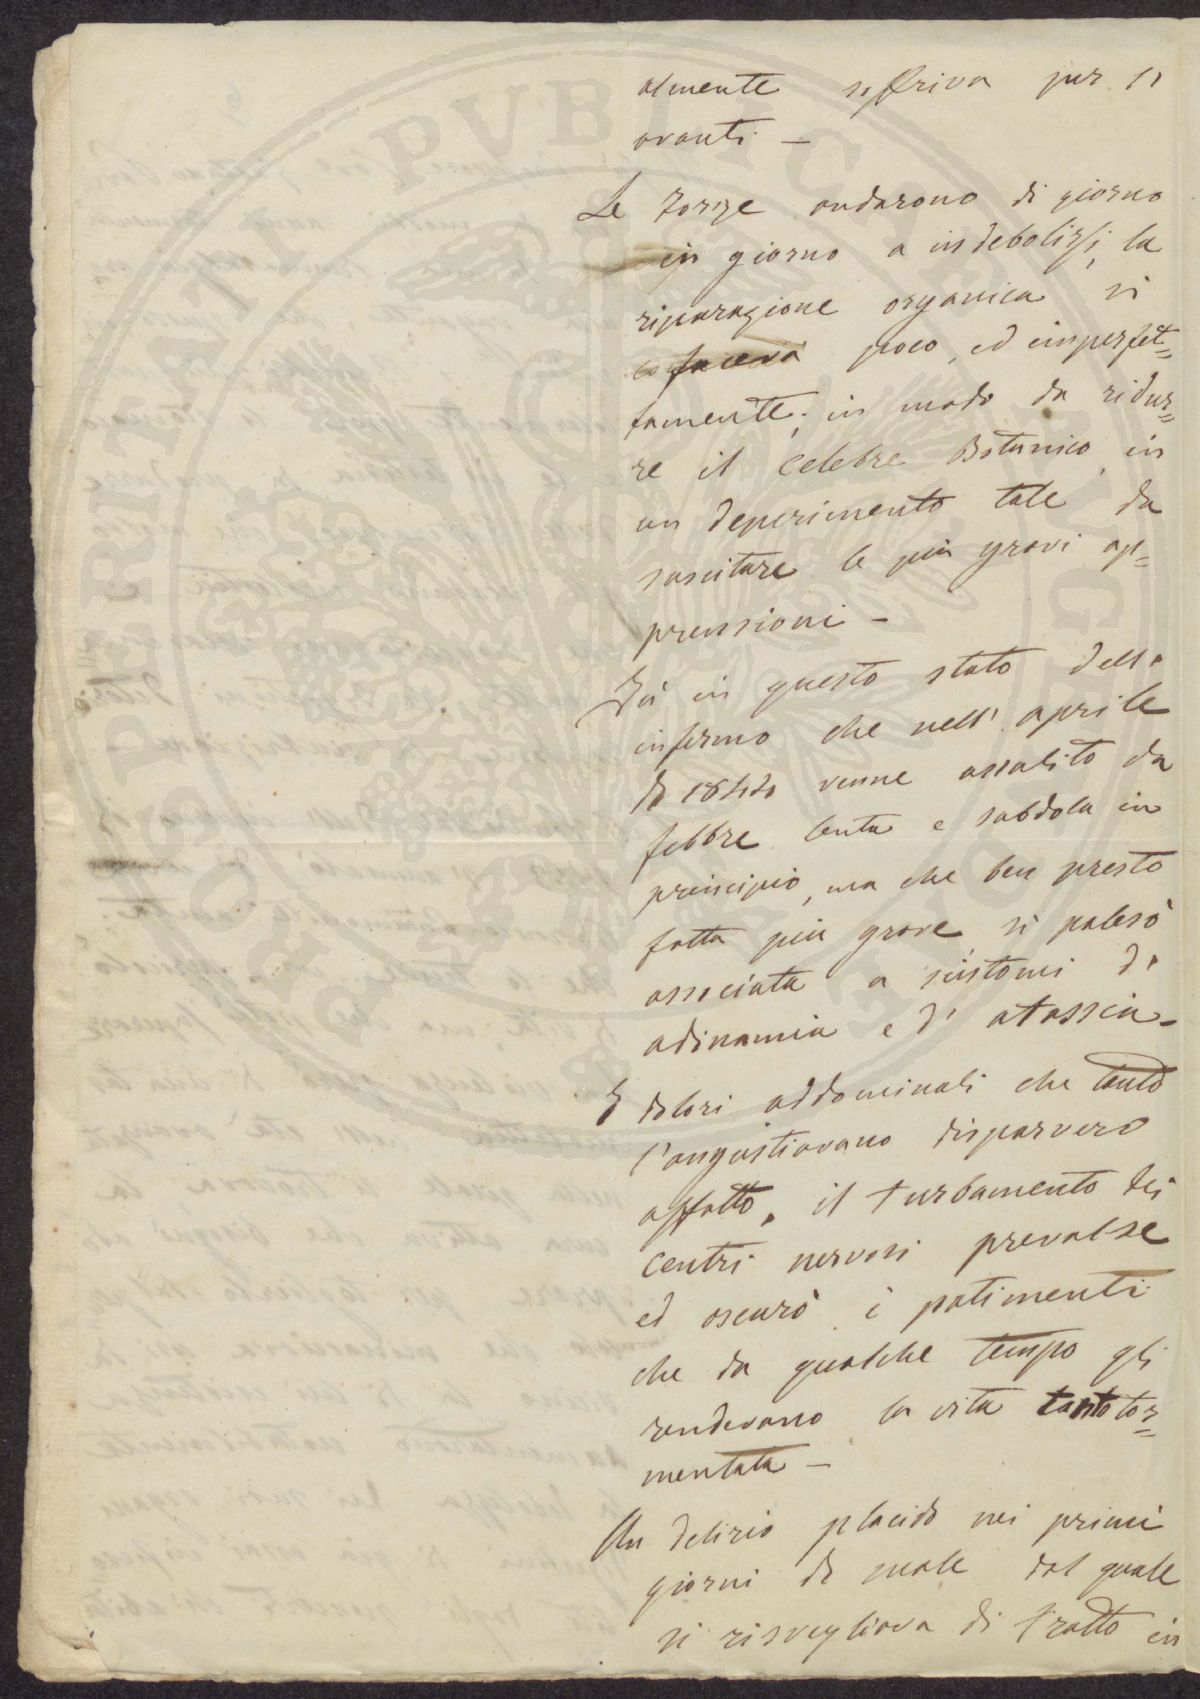 almente soffriva pur si
avanti —
Le forze andarono di giorno
in giorno a indebolirsi, la
riparazione organica si
faceva poco, ed imperfet=
tamente; in modo da ridur=
re il celebre Botanico in
un deperimento tale da
suscitare le più gravi ap=
prensioni —
Fù in questo stato dell'
infermo che nell' aprile
di 1842 venne assalito da
febbre lenta e subdola in
principio, ma che ben presto
fatta più grave si palesò
associata a sintomi di
adinamia e d' atassia —
I dolori addominali che tanto
l'angustiavano disparvero
affatto, il turbamento dei
centri nervosi prevalse
ed oscurò i patimenti
che da qualche tempo gli
rendevano la vita tanto tor=
mentata —
Un delirio placido nei primi
giorni di male dal quale
si risvegliava di tratto in
PUBLICAE